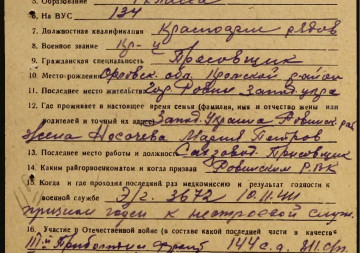 5. Образование 4 класса
6. На ВУС 134
7. Должностная квалификация Красноарм рядов
8. Военное звание Кр-ц
9. Гражданская специальность Пресовщик
10. Место-рождение Орловск. обл. Троснской район
11. Последнее место жительства гор Ровно Запад. укра
12. Где проживает в настоящее время семья (фамилия, имя и отчество жены или
родителей и точный их адрес) Запад. Украина Ровинск. рай
Жена Носочева Мария Петров
13. Последнее место работы и должность Пресовщик
14. Каким райгорвоенкоматом и когда призван Ровинским РВК
15. Когда и где проходил последний раз медкомиссию и результат годности к
военной службе Э/г. 3672 10.11.44
признан годен к нестроевой служ.
16. Участие в Отечественной войне (в составе какой последней части и в качестве
III й Прибалтий фронт 144 с.д. 311 сп.